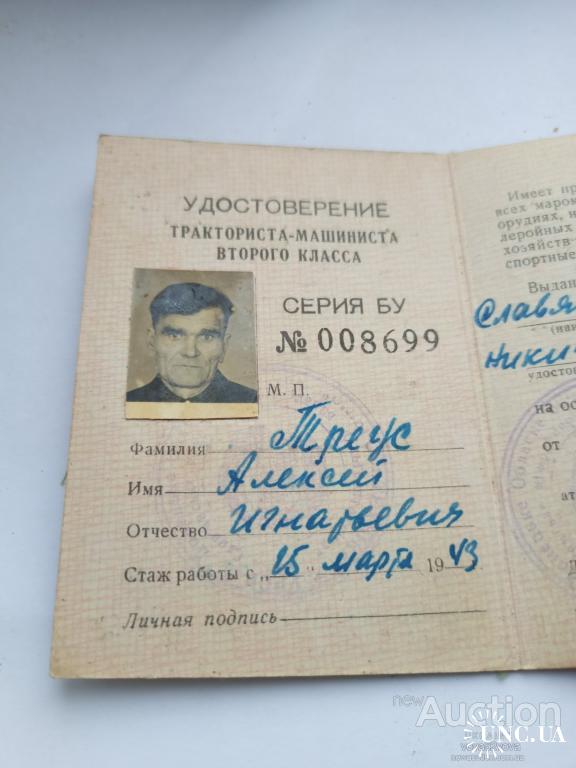 УДОСТОВЕРЕНИЕ
ТРАКТОРИСТА-МАШИНИСТА
ВТОРОГО КЛАССА
СЕРИЯ БУ
№ 008699
М. П.
Фамилия Треус
Имя Алексей
Отчество Игнатьевич
Стаж работы с „15" марта 1943
Личная подпись
Имеет пр
всех марок
орудиях, н
леройных
хозяйств-
спортные
Выдан
Славя
(наи
Ники
удосто
на ос
от
ат
new Auction
UNC.UA
novauction.com.ua